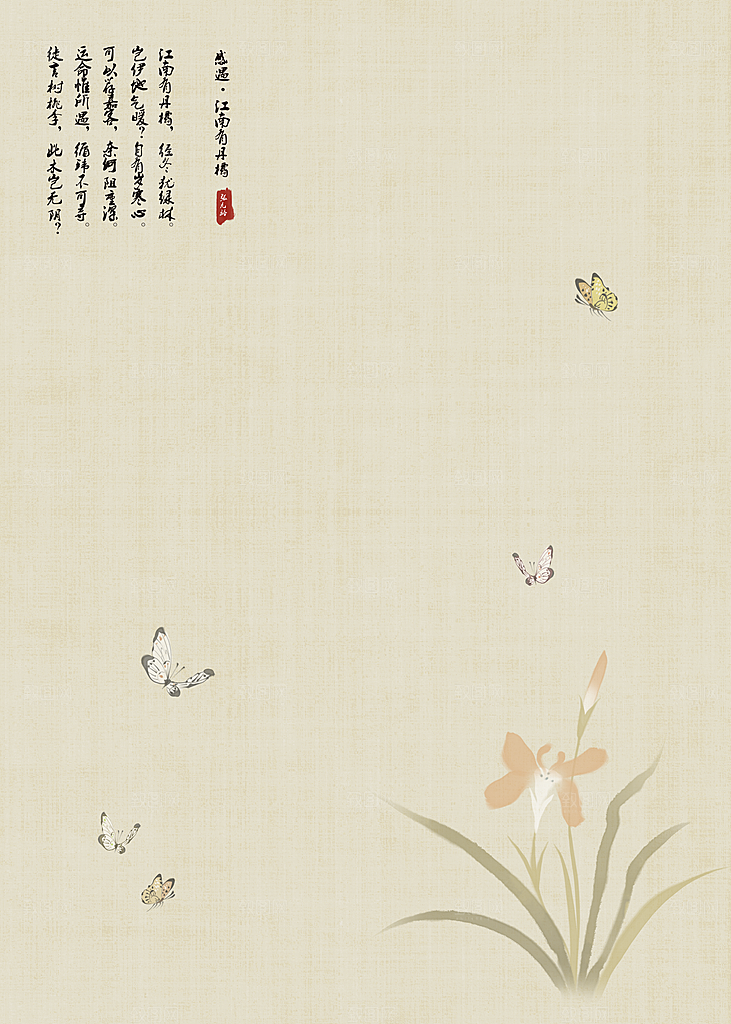 感遇·江南有丹橘
张九龄
江南有丹橘，经冬犹绿林。
岂伊地气暖？自有岁寒心。
可以荐嘉客，奈何阻重深。
运命惟所遇，循环不可寻。
徒言树桃李，此木岂无阴？